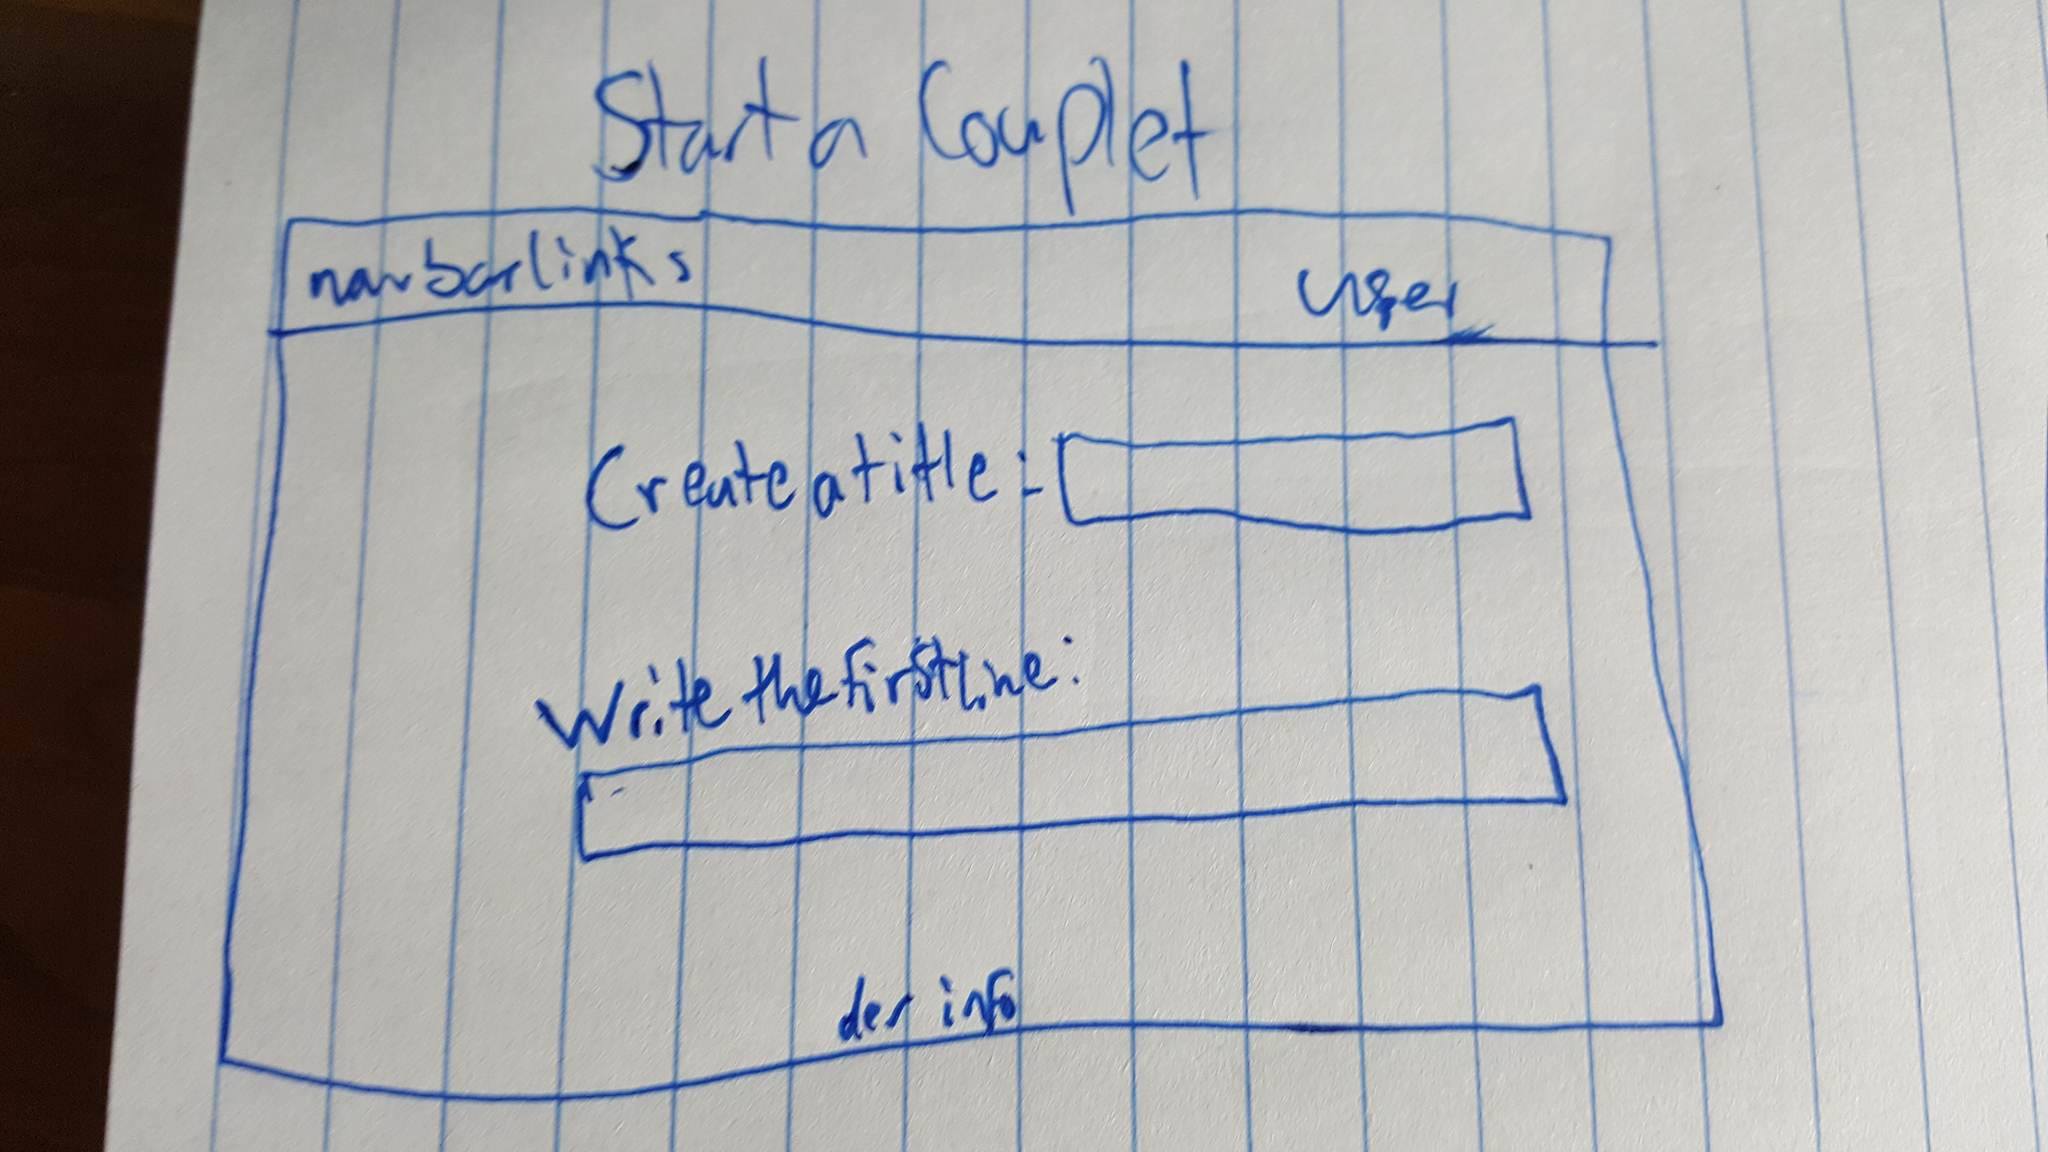 Start a Couplet
navbar links User
Create a title:
Write the first line:
der info